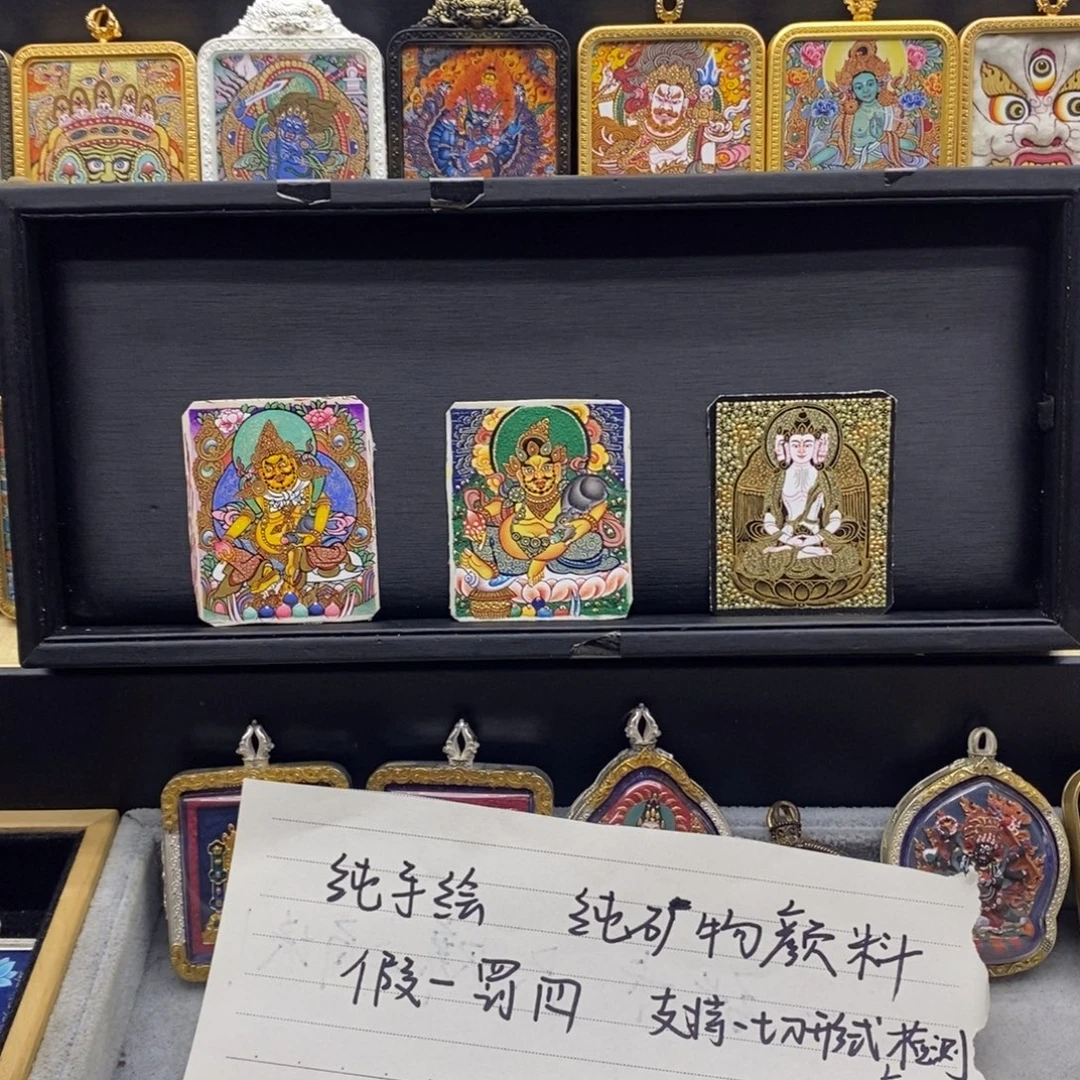 纯手绘 纯矿物颜料
假一罚四 支持一切形式检测